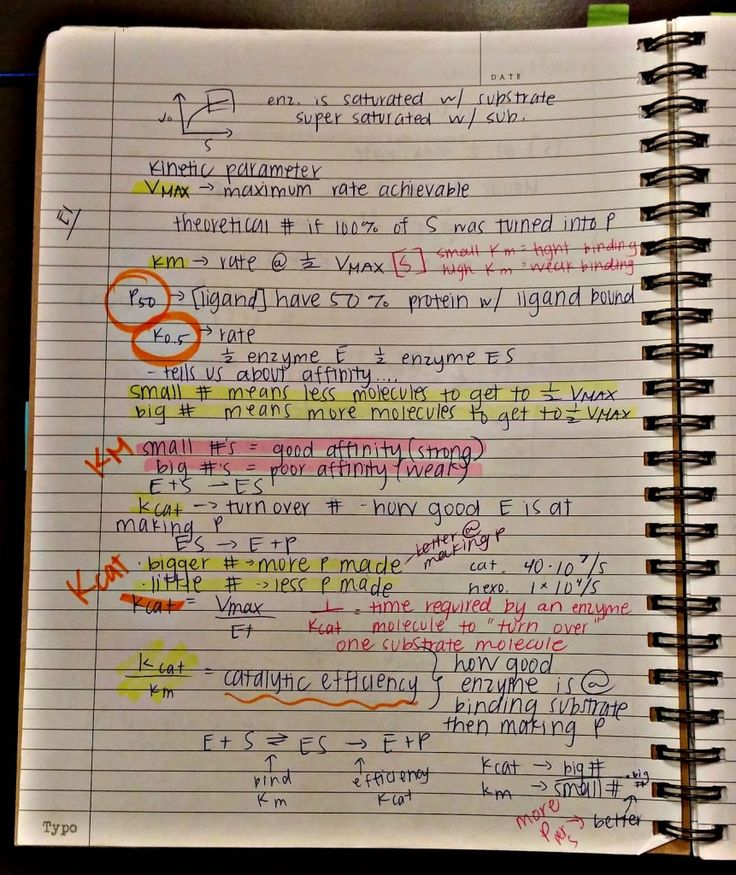 DATE
enz. is saturated w/ substrate
super saturated w/ sub.
V₀
S
Kinetic parameter
VMAX → maximum rate achievable
theoretical # if 100% of S was turned into P
Km → rate @ ½ VMAX [S] small Km = tight binding
high Km = weak binding
P50 → [ligand] have 50% protein w/ ligand bound
K0.5 → rate
½ enzyme E ½ enzyme ES
- tells us about affinity....
small # means less molecules to get to ½ VMAX
big # means more molecules to get to ½ VMAX
KM small #'s = good affinity (strong)
big #'s = poor affinity (weak)
E+S → ES
Kcat → turn over # - how good E is at
making P
ES → E+P
Kcat · bigger # → more P made better @ making P cat. 40·10⁷/s
· little # → less P made hexo. 1×10⁴/s
Kcat = Vmax / Et 1/Kcat = time required by an enzyme
molecule to "turn over"
one substrate molecule
Kcat / Km = catalytic efficiency } how good
enzyme is @
binding substrate
then making P
E + S ⇌ ES → E+P
↑ bind Km ↑ efficiency Kcat
Kcat → big #
Km → small # · big #
more P per S → better
Typo